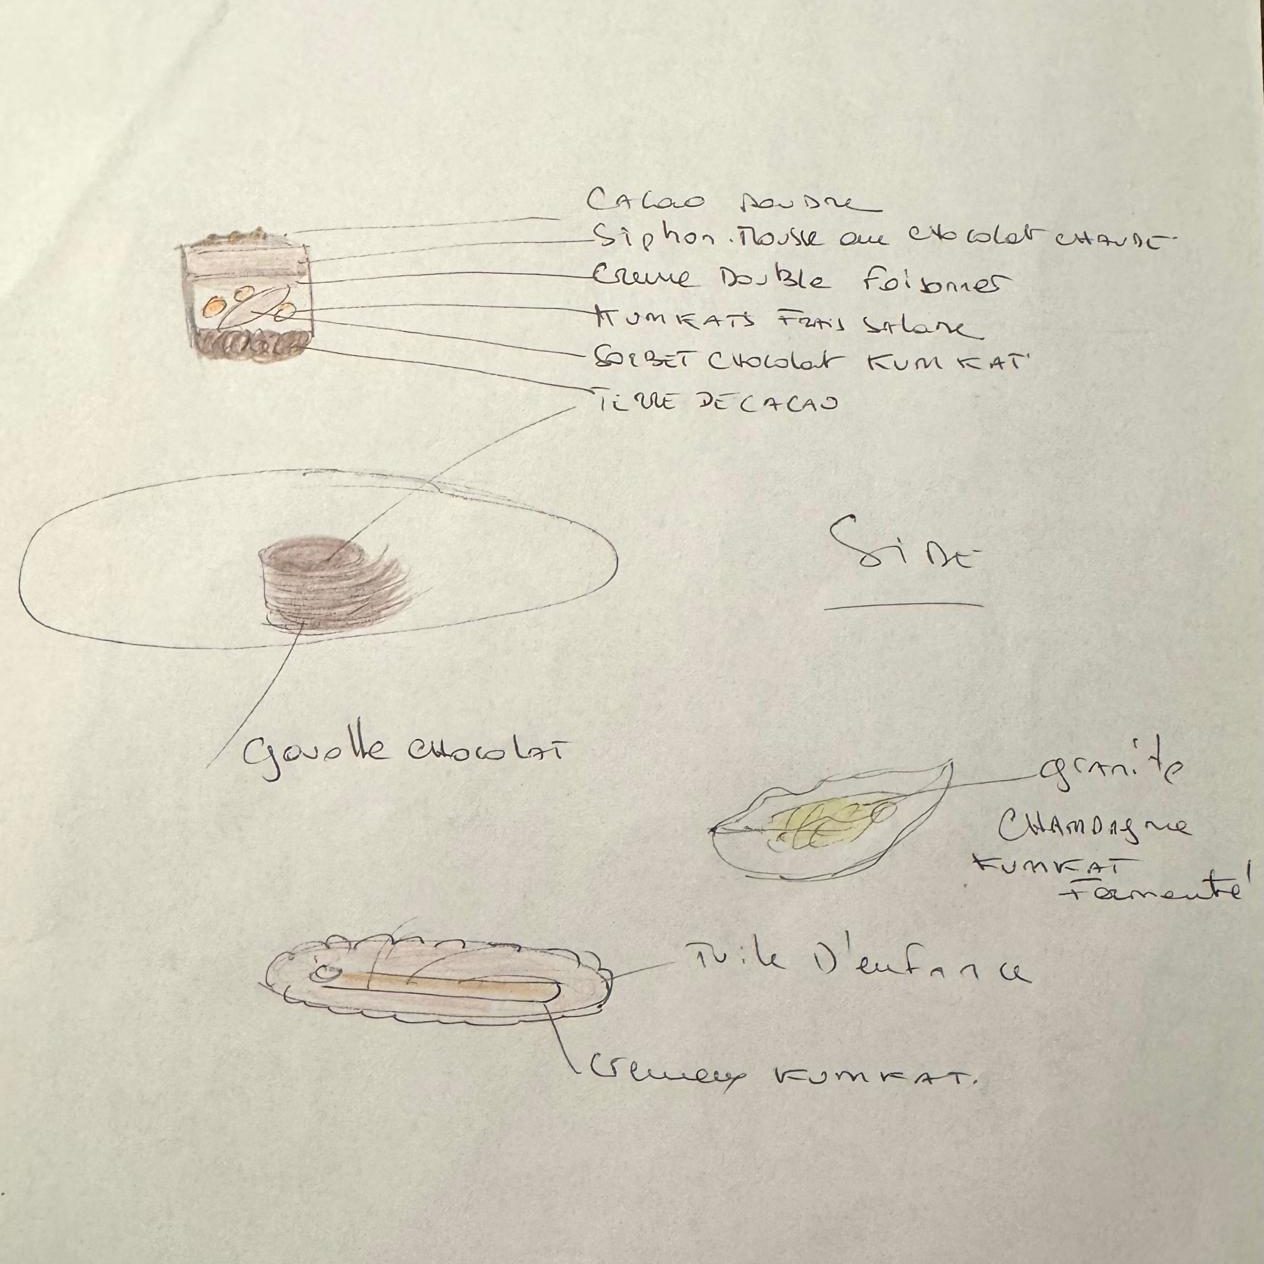 CACAO POUDRE
Siphon. Mousse au CHOCOLAT CHAUDE.
Creme DOUBLE foisonner
KUMKATS FRAIS SALADE
SORBET CHOCOLAT KUM KAT
TERRE DE CACAO
SIDE
gavotte CHOCOLAT
granite
CHAMPAGNE
KUMKAT
Fermenté
Tuile D'enfance
Cremeux KUMKAT.